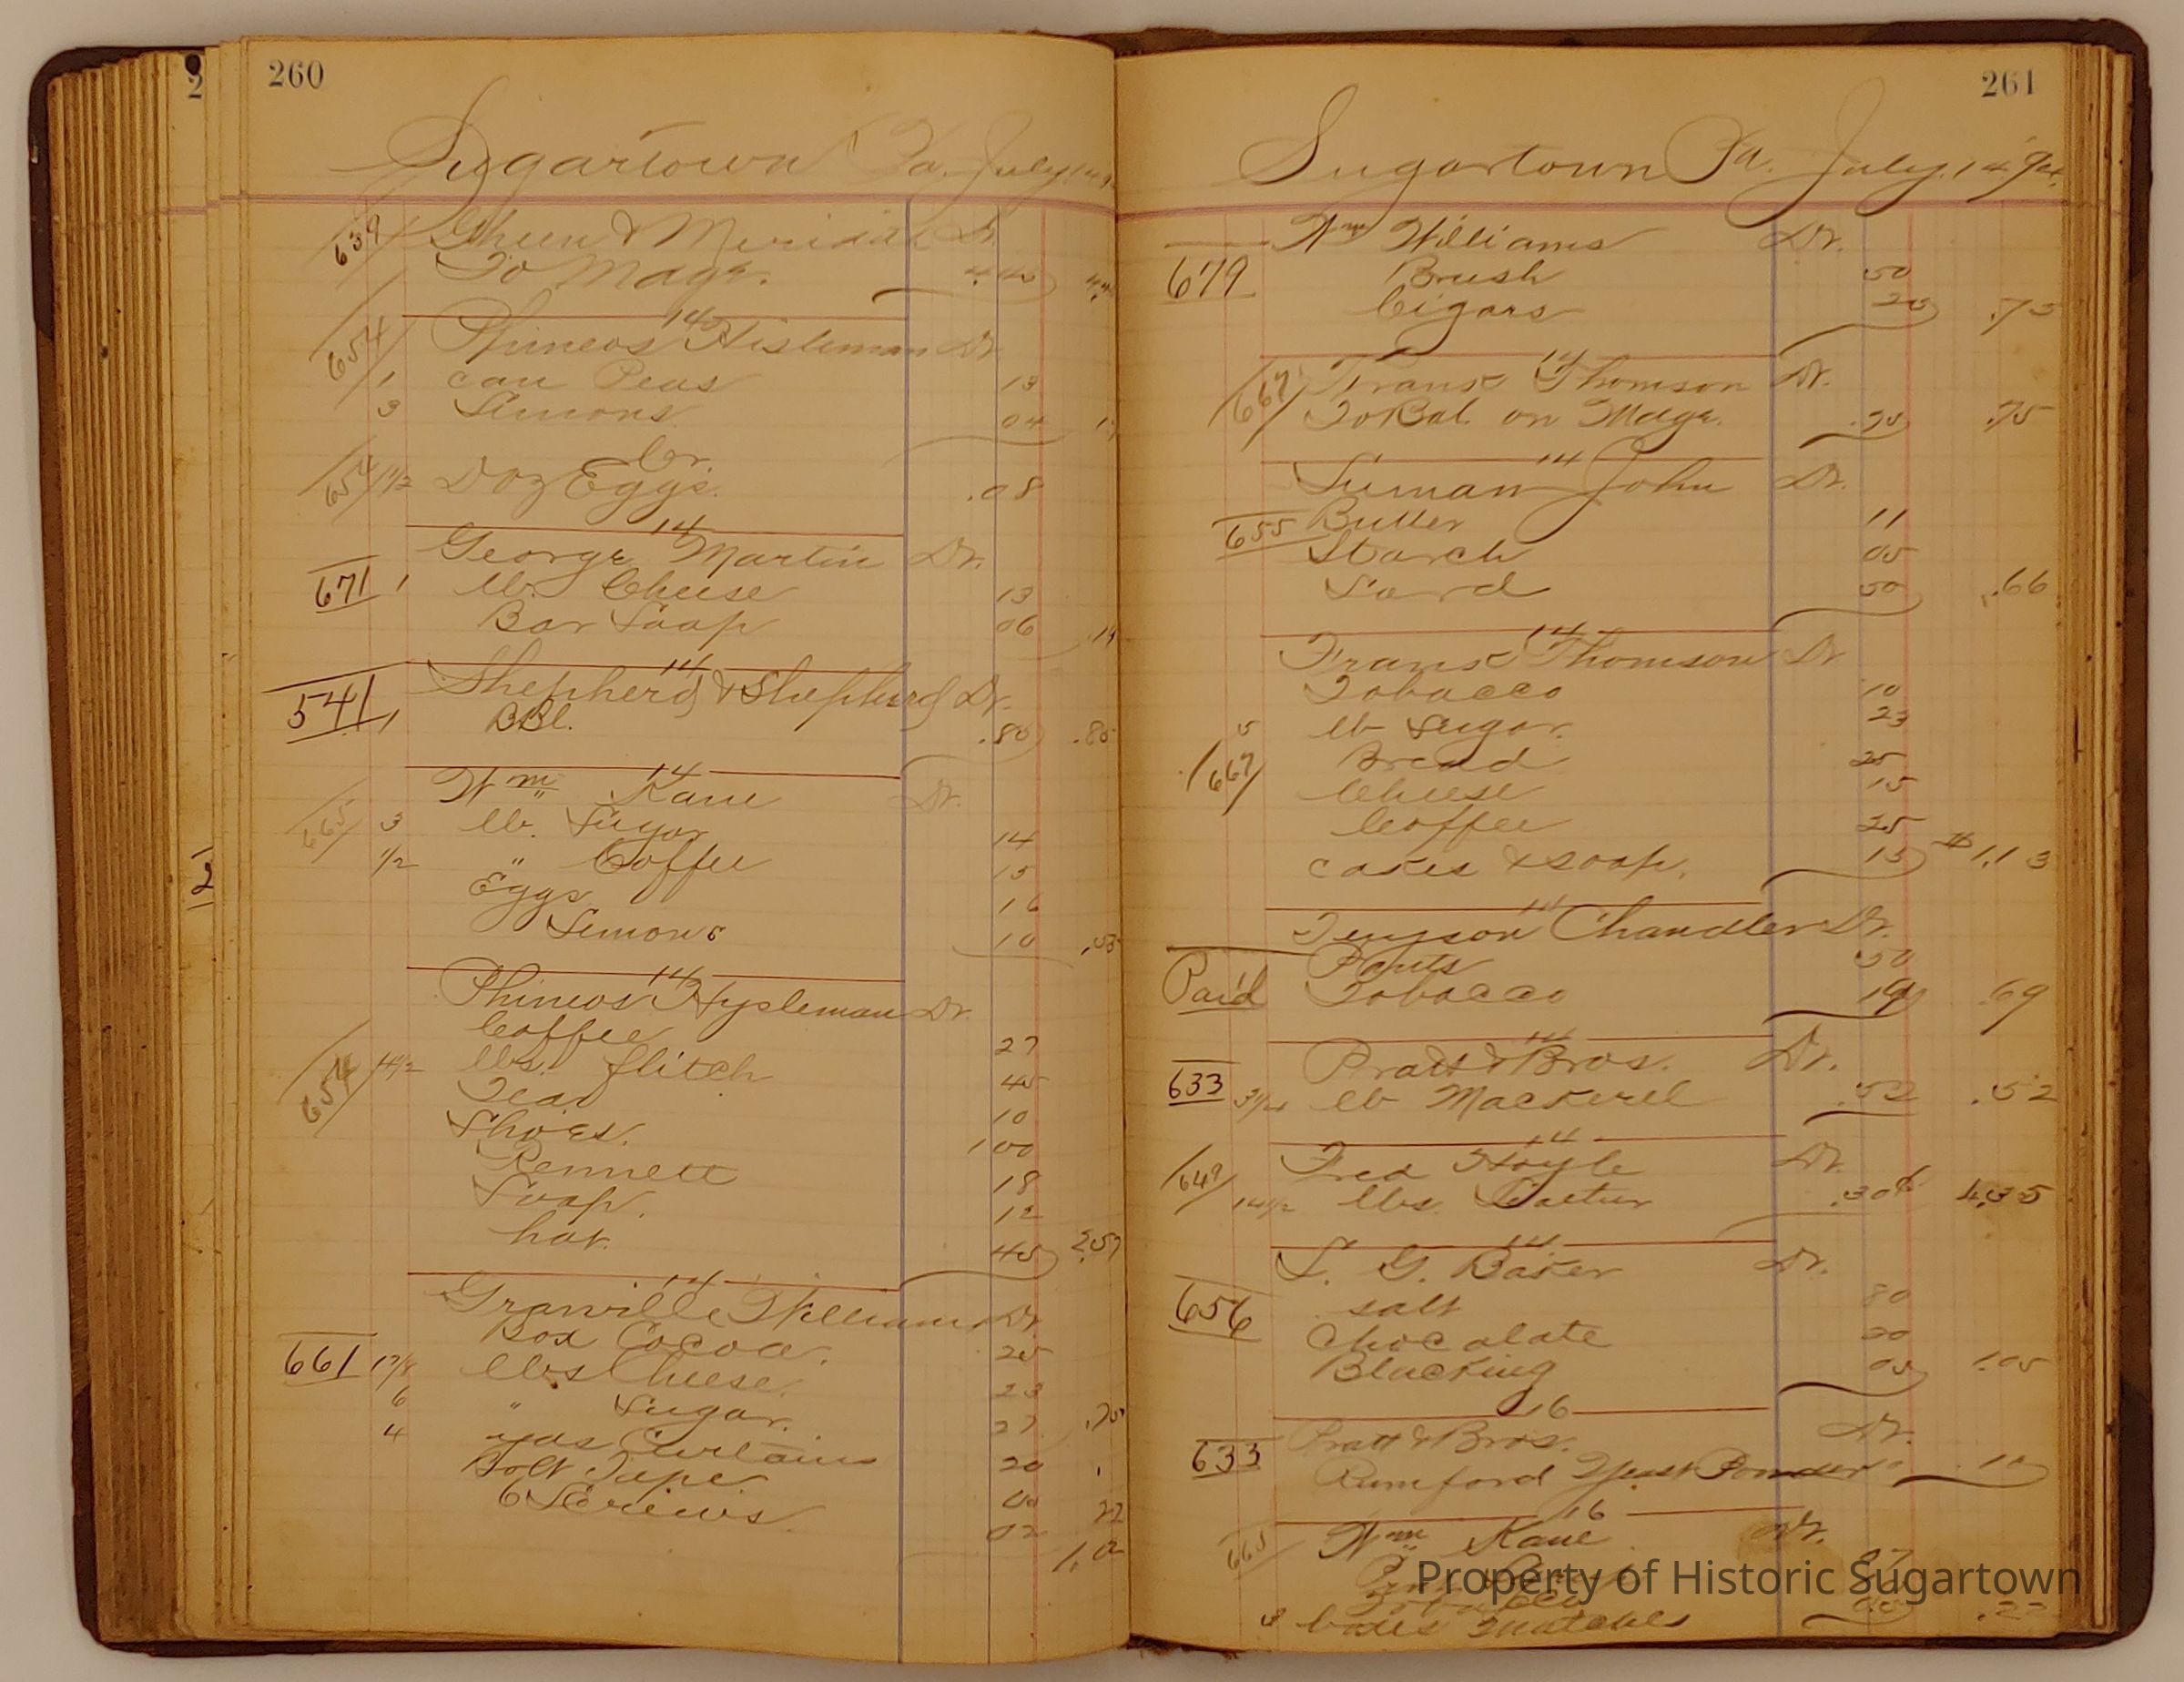 260
Sugartown Pa. July
639 Green & Dr.
To Mdge.
14
654 Phineas Hisleman Dr.
1 can Peas 13
3 Lemons 04 17
Cr.
654 1 1/2 Doz Eggs. .08
14
George Martin Dr.
671 1 lb. Cheese 13
Bar Soap 06 .19
14
Shepherd & Shepherd Dr.
541 1 BBl. .80
14
Wm Kane Dr.
665 3 lb. Sugar 14
1/2 " Coffee 15
Eggs 16
Lemons 10
14
Phineas Hysleman Dr.
Coffee 27
654 4 1/2 lbs. flitch 45
Tea 10
Shoes. 100
Rennett 18
Soap. 12
hat. 45 2.57
14
Granville William Dr.
Box Cocoa. 25
661 1 7/8 lbs Cheese. 23
6 " Sugar. 27 .75
4 yds Curtains 20
Bolt Tape
6 Screws 02
261
Sugartown Pa. July 14
Wm Williams Dr.
679 Brush 50
Cigars 25 .75
14
667 Frank Thomson Dr.
To Bal. on Mdge. .75 .75
14
Suman John Dr.
655 Butter 11
Starch 05
Lard 50 .66
14
Frank Thomson Dr
Tobacco 10
5 lb Sugar. 23
667 Bread 25
Cheese 15
Coffee 25
cakes & soap. 15 $1.13
14
Tenyson Chandler Dr.
Paid Pants 50
Tobacco 19 .69
14
Pratt & Bros. Dr.
633 3 1/4 lb Mackerel .52 .52
14
649 Fred Hoyle Dr.
14 1/2 lbs. .30 4.35
14
L. G. Baker Dr.
656 salt 80
Chocolate 20
Blacking 05 1.05
16
Pratt & Bros. Dr.
633 Rumford Yeast Powder 10
16
665 Wm Kane Dr.
3 boxes matches
Property of Historic Sugartown